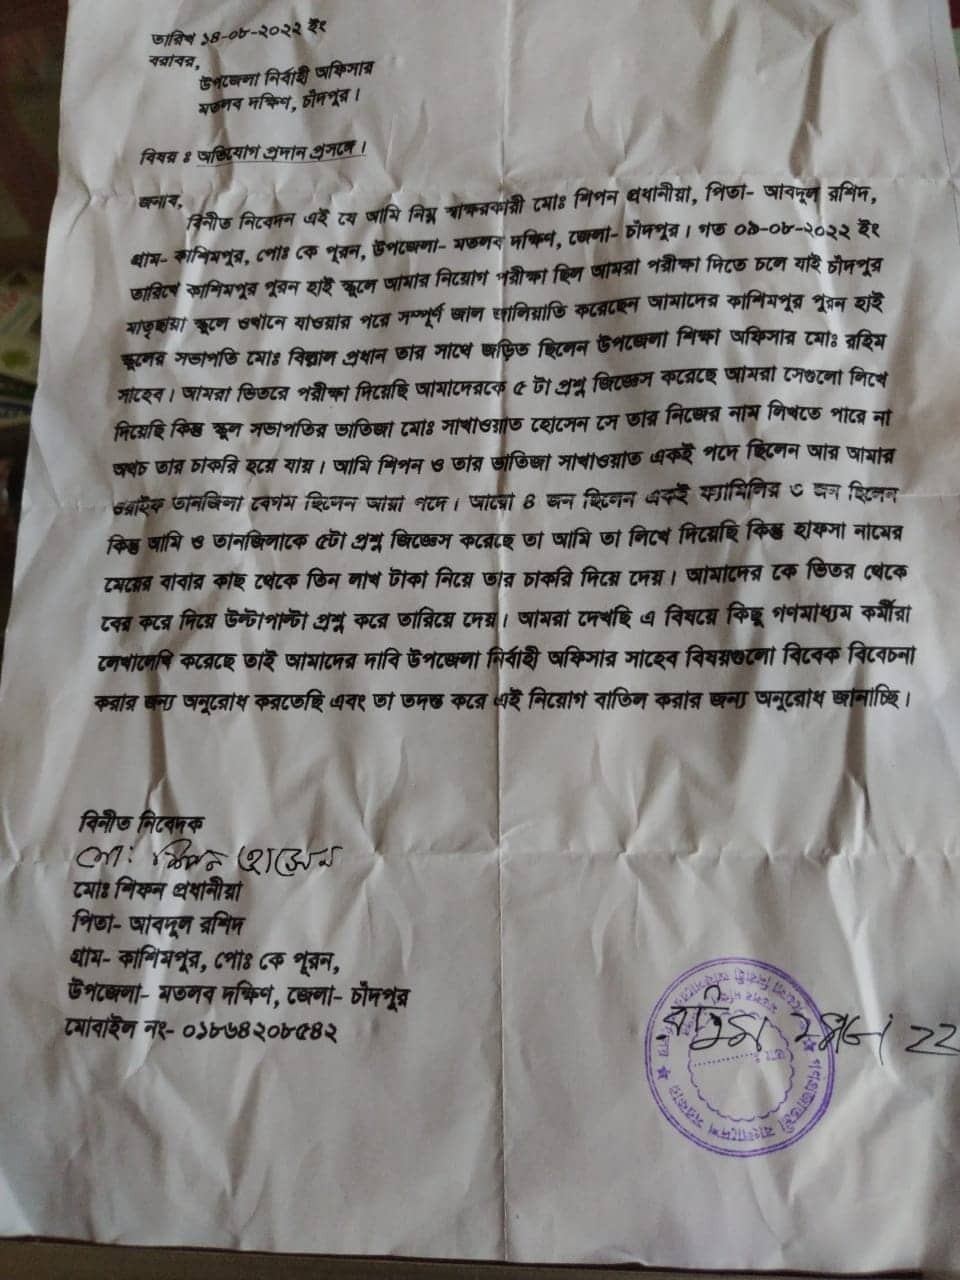 তারিখ ১৪-০৮-২০২২ ইং
বরাবর,
উপজেলা নির্বাহী অফিসার
মতলব দক্ষিণ, চাঁদপুর।
বিষয় ঃ অভিযোগ প্রদান প্রসঙ্গে।
জনাব,
বিনীত নিবেদন এই যে আমি নিম্ন স্বাক্ষরকারী মোঃ শিপন প্রধানীয়া, পিতা- আবদুল রশিদ,
গ্রাম- কাশিমপুর, পোঃ কে পূরন, উপজেলা- মতলব দক্ষিণ, জেলা- চাঁদপুর। গত ০৯-০৮-২০২২ ইং
তারিখে কাশিমপুর পূরন হাই স্কুলে আমার নিয়োগ পরীক্ষা ছিল আমরা পরীক্ষা দিতে চলে যাই চাঁদপুর
মাতৃছায়া স্কুলে ওখানে যাওয়ার পরে সম্পূর্ণ জাল জালিয়াতি করেছেন আমাদের কাশিমপুর পূরন হাই
স্কুলের সভাপতি মোঃ বিল্লাল প্রধান তার সাথে জড়িত ছিলেন উপজেলা শিক্ষা অফিসার মোঃ রহিম
সাহেব। আমরা ভিতরে পরীক্ষা দিয়েছি আমাদেরকে ৫ টা প্রশ্ন জিজ্ঞেস করেছে আমরা সেগুলো লিখে
দিয়েছি কিন্তু স্কুল সভাপতির ভাতিজা মোঃ সাখাওয়াত হোসেন সে তার নিজের নাম লিখতে পারে না
অথচ তার চাকরি হয়ে যায়। আমি শিপন ও তার ভাতিজা সাখাওয়াত একই পদে ছিলেন আর আমার
ওয়াইফ তানজিলা বেগম ছিলেন আয়া পদে। আয়ো ৪ জন ছিলেন একই ফ্যামিলির ৩ জন ছিলেন
কিন্তু আমি ও তানজিলাকে ৫টা প্রশ্ন জিজ্ঞেস করেছে তা আমি তা লিখে দিয়েছি কিন্তু হাফসা নামের
মেয়ের বাবার কাছ থেকে তিন লাখ টাকা নিয়ে তার চাকরি দিয়ে দেয়। আমাদের কে ভিতর থেকে
বের করে দিয়ে উল্টাপাল্টা প্রশ্ন করে তারিয়ে দেয়। আমরা দেখছি এ বিষয়ে কিছু গণমাধ্যম কর্মীরা
লেখালেখি করেছে তাই আমাদের দাবি উপজেলা নির্বাহী অফিসার সাহেব বিষয়গুলো বিবেক বিবেচনা
করার জন্য অনুরোধ করতেছি এবং তা তদন্ত করে এই নিয়োগ বাতিল করার জন্য অনুরোধ জানাচ্ছি।
বিনীত নিবেদক
মোঃ শিপন হোসেন
মোঃ শিফন প্রধানীয়া
পিতা- আবদুল রশিদ
গ্রাম- কাশিমপুর, পোঃ কে পূরন,
উপজেলা- মতলব দক্ষিণ, জেলা- চাঁদপুর
মোবাইল নং- ০১৮৬৪২০৮৫৪২
গণপ্রজাতন্ত্রী বাংলাদেশ সরকার